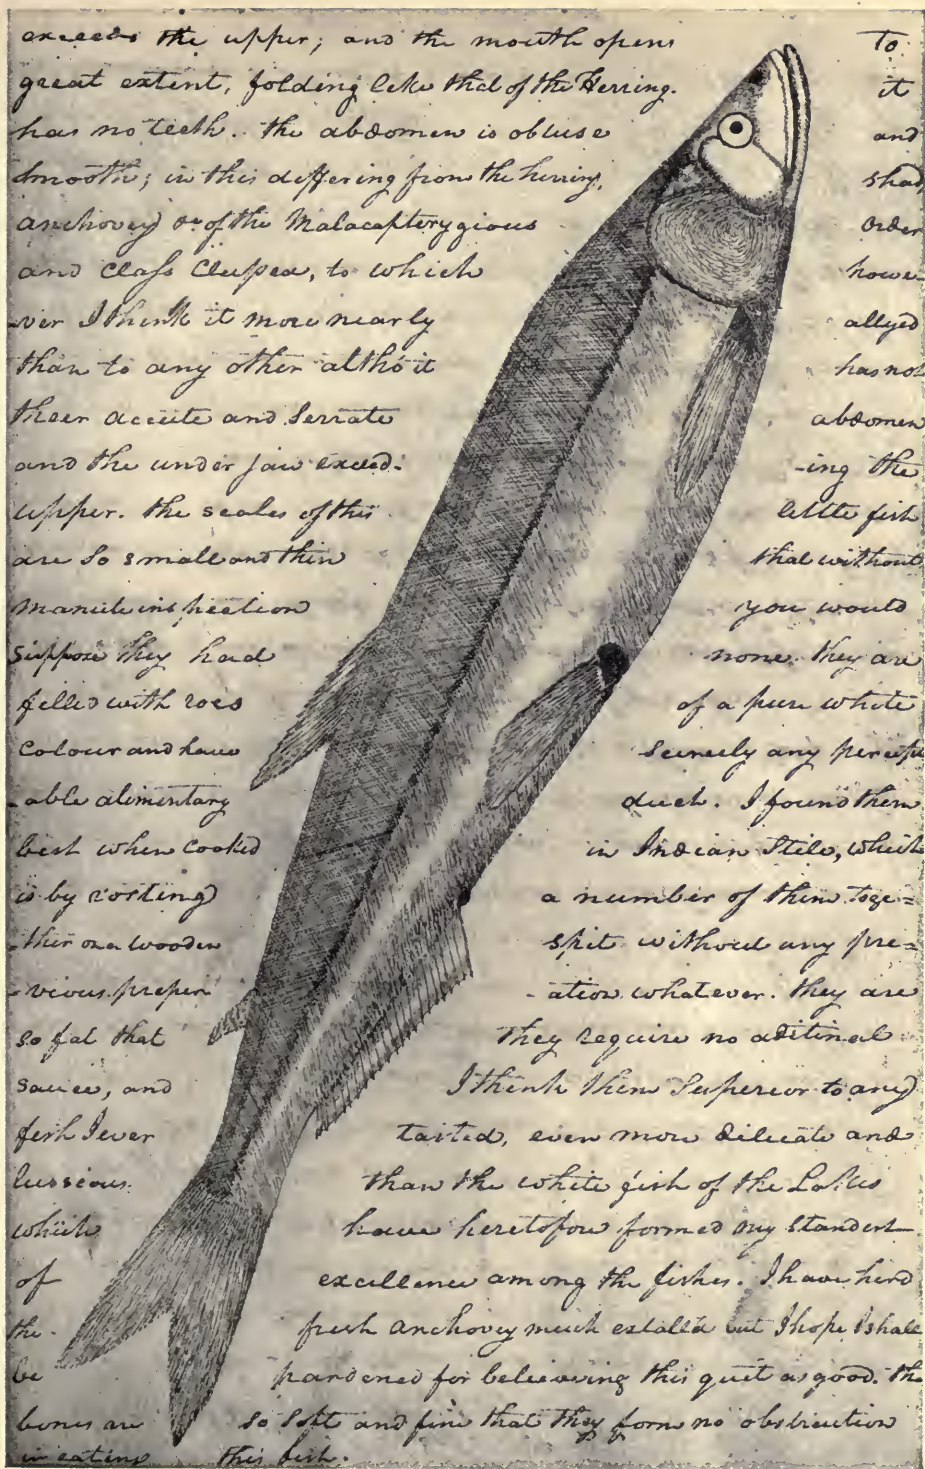 exceeds the upper; and the mouth opens To
great extent, folding like that of the Herring. it
has no teeth. the abdomen is obtuse and
smooth; in this differing from the herring, shad
anchovey &c of the Malacapterygious Order
and Class Clupea, to which howe-
-ver I think it more nearly allyed
than to any other altho' it has not
their accute and Serrate abdomen
and the under jaw exceed- -ing the
upper. the scales of this little fish
are So small and thin that without
manute inspection you would
suppose they had none. they are
filled with roes of a pure white
colour and have scercely any percept
-able alimentary duct. I found them
best when cooked in Indian Stile, which
is by rosting a number of them toge=
-ther on a wooden spit without any pre=
-vious preper -ation whatever. they are
so fat that they require no aditinal
sauce, and I think them Superior to any
fish I ever tasted, even more dilicate and
lussious than the white fish of the Lakes
which have heretofore formed my standert
of excellence among the fishes. I have herd
the fresh anchovey much extolled but I hope I shall
be pardened for believing this quit as good. the
bones are so Soft and fine that they form no obstruction
in eating this fish.